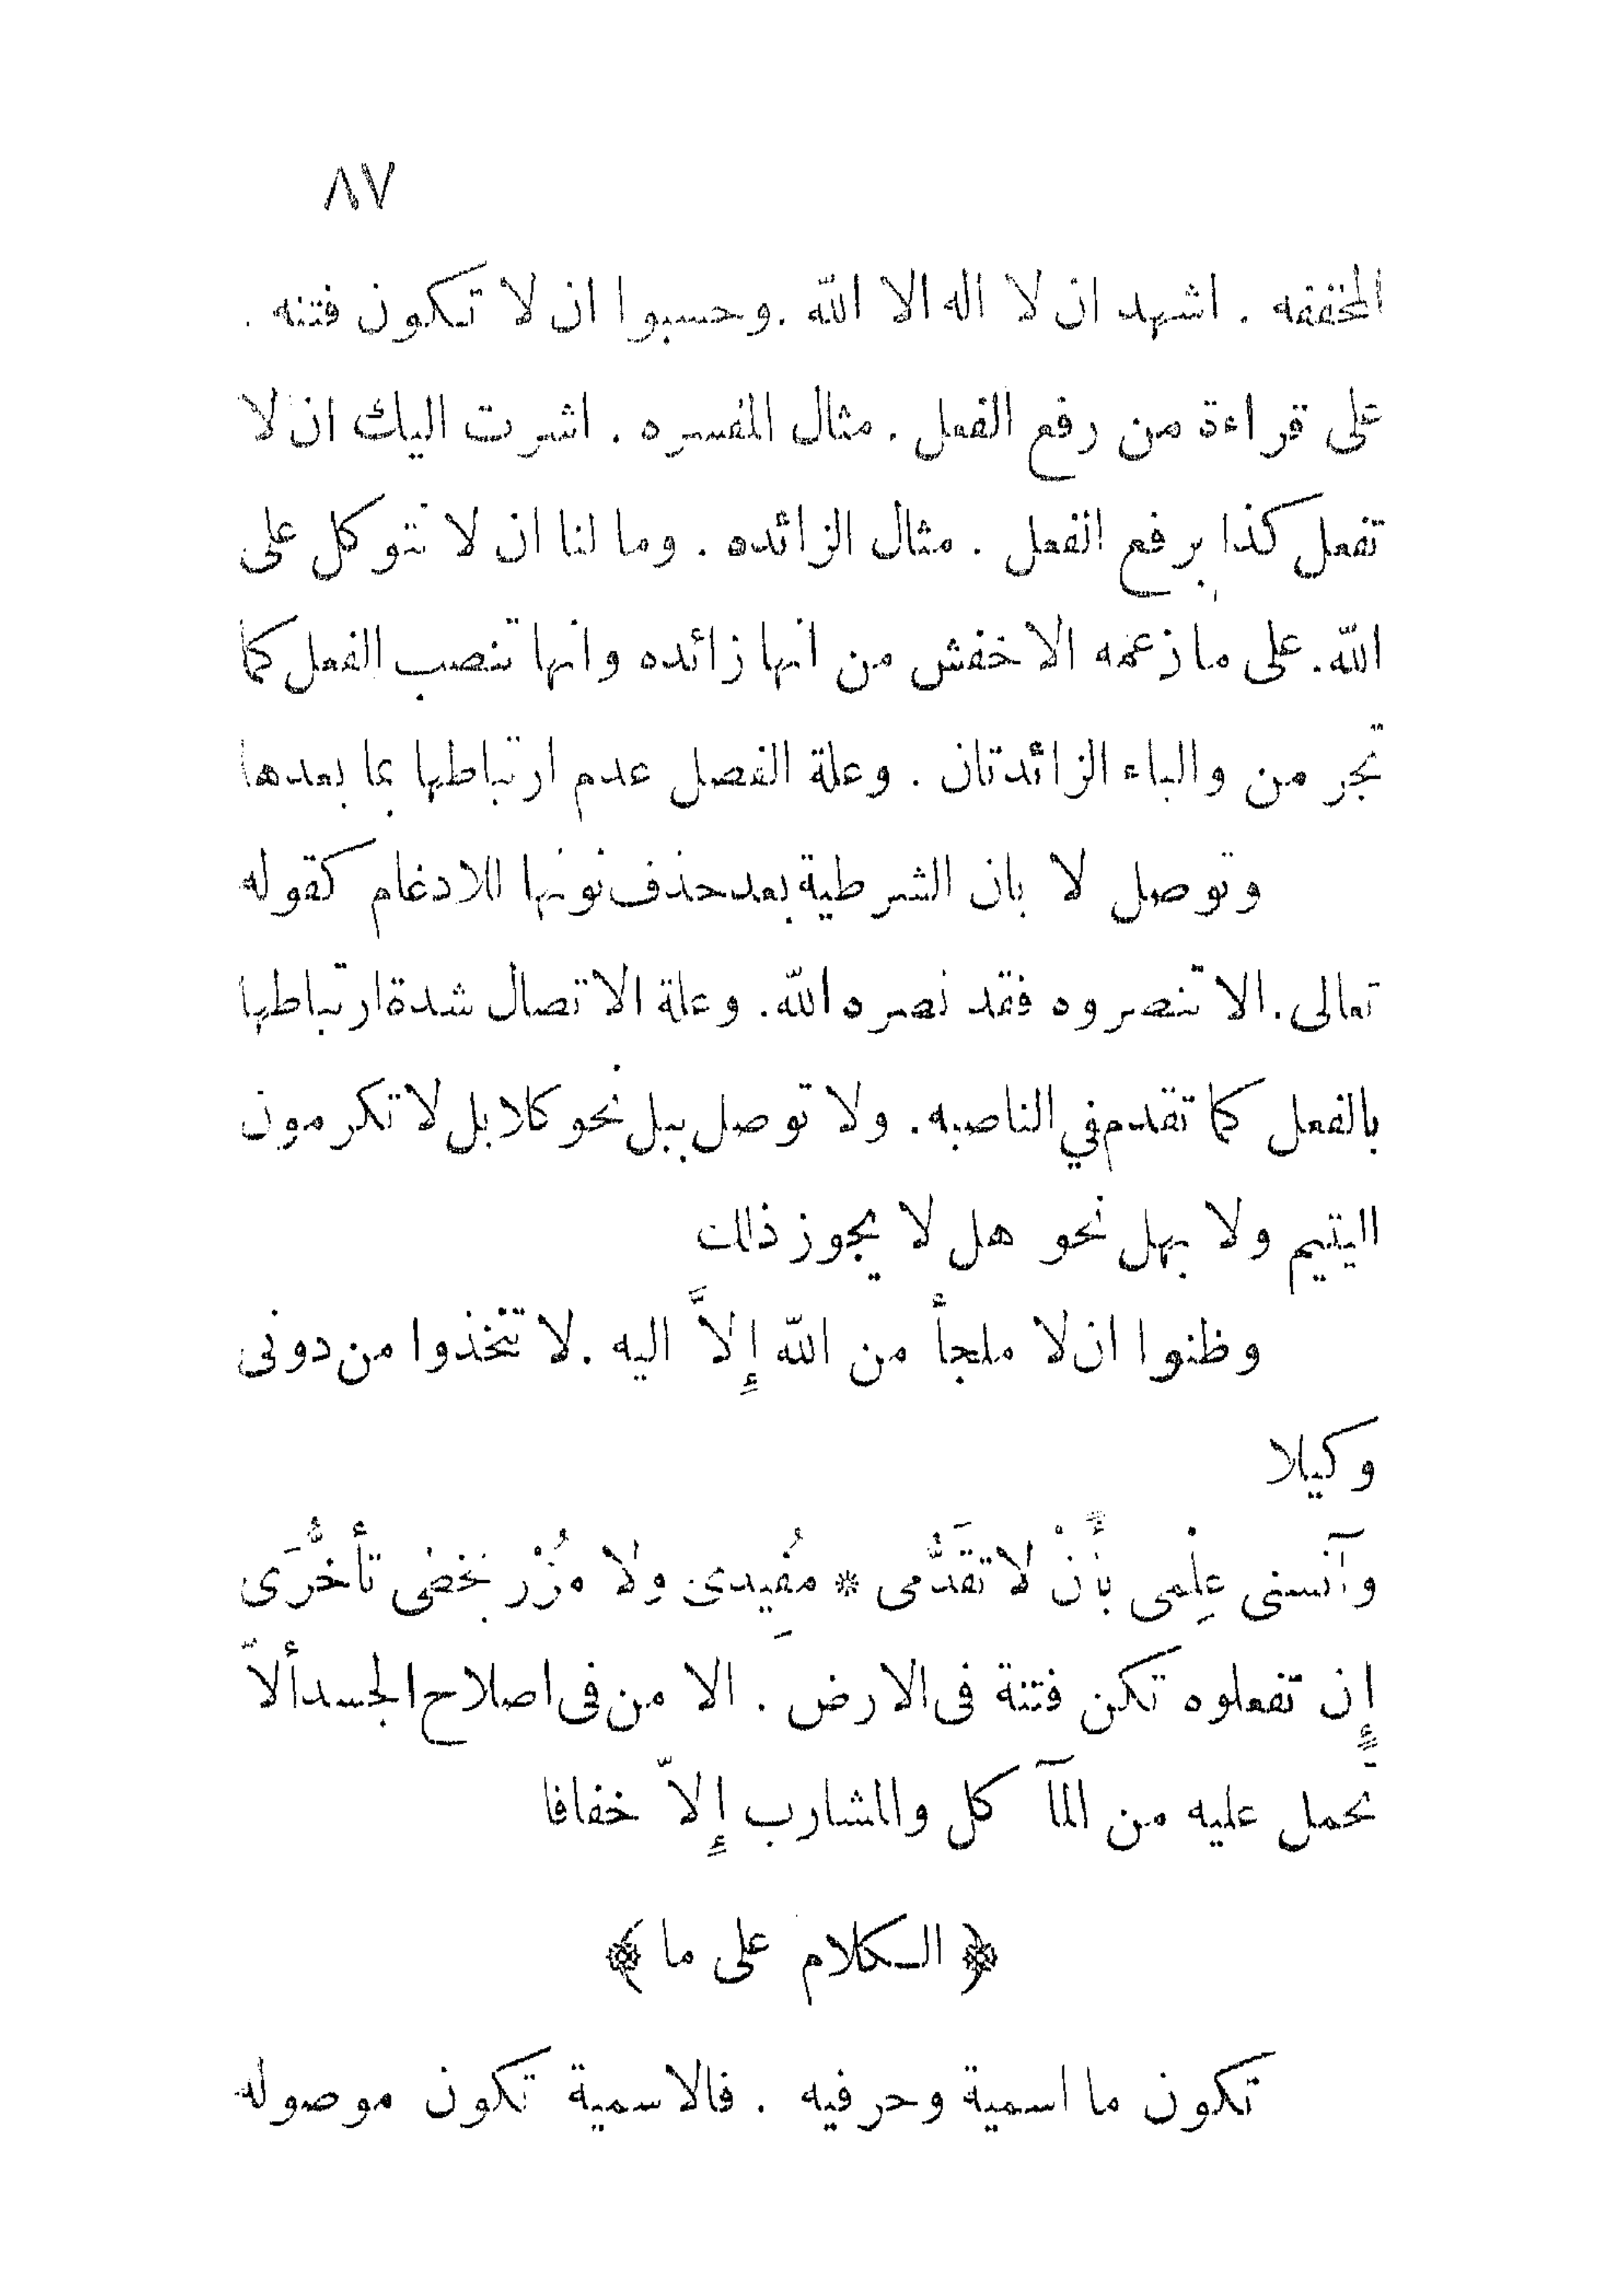 ٨٧
المخففه . اشهد ان لا اله الا الله . وحسبوا ان لا تكون فتنه .
على قراءة من رفع الفعل . مثال المفسره . اشرت اليك ان لا
تفعل كذا برفع الفعل . مثال الزائده . وما لنا ان لا نتوكل على
الله . على ما زعمه الاخفش من انها زائده وانها تنصب الفعل كما
تجر من والباء الزائدتان . وعلة الفصل عدم ارتباطها بما بعدها
وتوصل لا بان الشرطية بعد حذف نونها للادغام كقوله
تعالى . الا تنصروه فقد نصره الله . وعلة الاتصال شدة ارتباطها
بالفعل كما تقدم في الناصبه . ولا توصل ببل نحو كلا بل لا تكرمون
اليتيم ولا بهل نحو هل لا يجوز ذلك
وظنوا ان لا ملجأ من الله إِلاَّ اليه . لا تتخذوا من دونى
وكيلا
وآنسنى عِلْمى بأَنْ لا تقَدُّمى * مُفِيدى ولا مُزْر بخضى تأخُّرَى
إِن تفعلوه تكن فتنة فى الارض . الا من فى اصلاح الجسد ألاّ
تحمل عليه من المآكل والمشارب إِلاّ خفافا
﴿ الكلام على ما ﴾
تكون ما اسمية وحرفيه . فالاسمية تكون موصوله